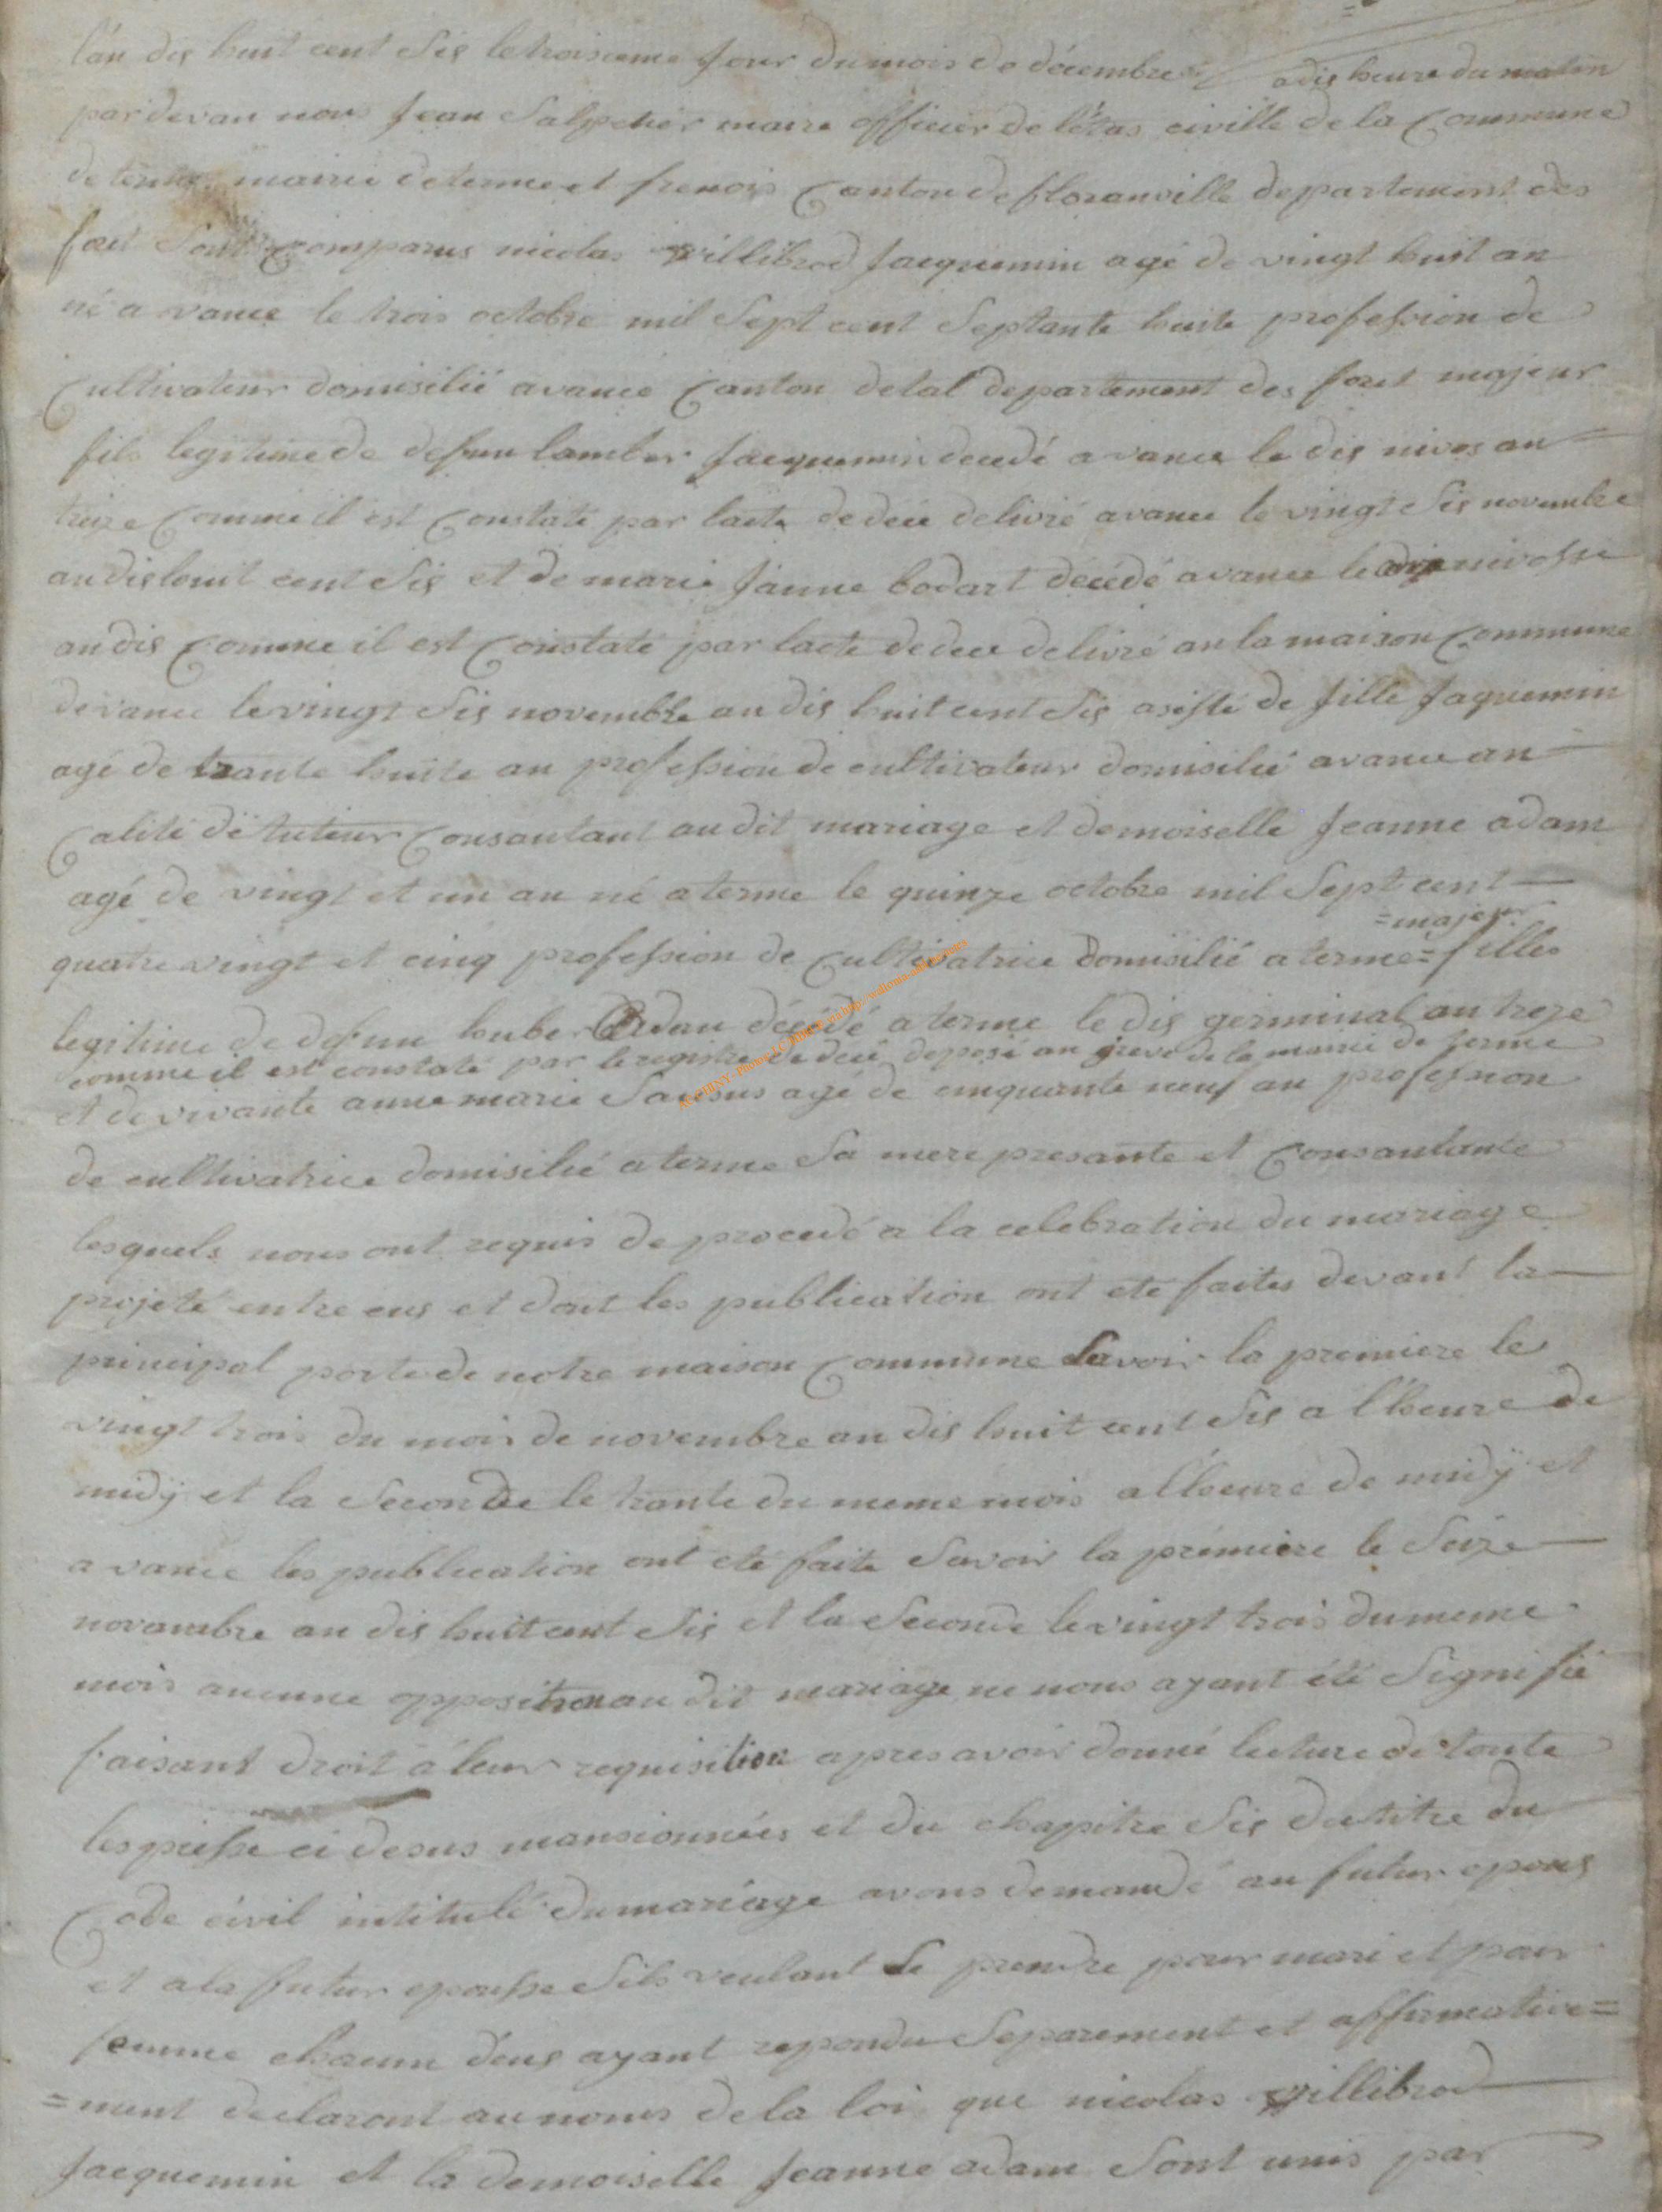 l'an dis huit cent sis le troisieme jour du mois de décembre a dis heure du matin
pardevan nous jean Salpetier maire officier de l'étas civille de la Commune
de terme mairie de terme et frenois Canton de floranville departement des
foret sont comparus nicolas willibrod jacquemin agé de vingt huit an
né a vance le trois octobre mil sept cent septante huite profession de
Cultivateur domisilié a vance Canton detal departement des foret majeur
fils legitime de defun lamber jacquemin decedé a vance le dis nivos an
treize Comme il est Constaté par lacte de decé delivré a vance le vingt sis novembre
an dis huit cent sis et de marie janne bodart décédé a vance le nivosse
an dis Comme il est Constaté par lacte de dece delivré an la maison Commune
de vance le vingt sis novembre an dis huit cent sis asisté de jille jaquemin
agé de trante huite an profession de cultivateur domisilié a vance an
Calité de tuteur Consantant au dit mariage et demoiselle jeanne adam
agé de vingt et un an né a terme le quinze octobre mil sept cent
=majeur
quatre vingt et cinq profession de Cultivatrice domisilié a terme= fille
legitime de defun huber Adam décédé a terme le dis germinal an treze
comme il est constaté par le registre de decé deposé an greve de la mairie de terme
et de vivante anne marie agé de cinquante neuf an profession
de cultivatrice domisilié a terme sa mere presante et Consantante
lesquels nous ont requis de procedé a la celebration du mariage
projeté entre eus et dont les publication ont eté faites devant la
principal porte de notre maison Commune Savoir la premiere le
vingt trois du mois de novembre an dis huit cent sis a l'heure de
midÿ et la seconde le trante du meme mois a l'heure de midÿ et
a vance les publication ont eté faite savoir la premiere le seize
novambre an dis huit cent sis et la seconde le vingt trois du meme
mois aucune opposition au dit mariage ne nous ayant été signifié
faisant droit a leur requisition apres avoir donné lecture de toute
les piesse ci desus mansionnées et du chapitre sis du titre du
Code civil intitulé du mariage avons demandé au futur epous
et a la futur epousse sils veulent se prendre pour mari et pour
femme chacun d'eus ayant repondu separement et affirmative=
=ment declaront au noms de la loi que nicolas willibrod
jacquemin et la demoiselle jeanne adam sont unis par